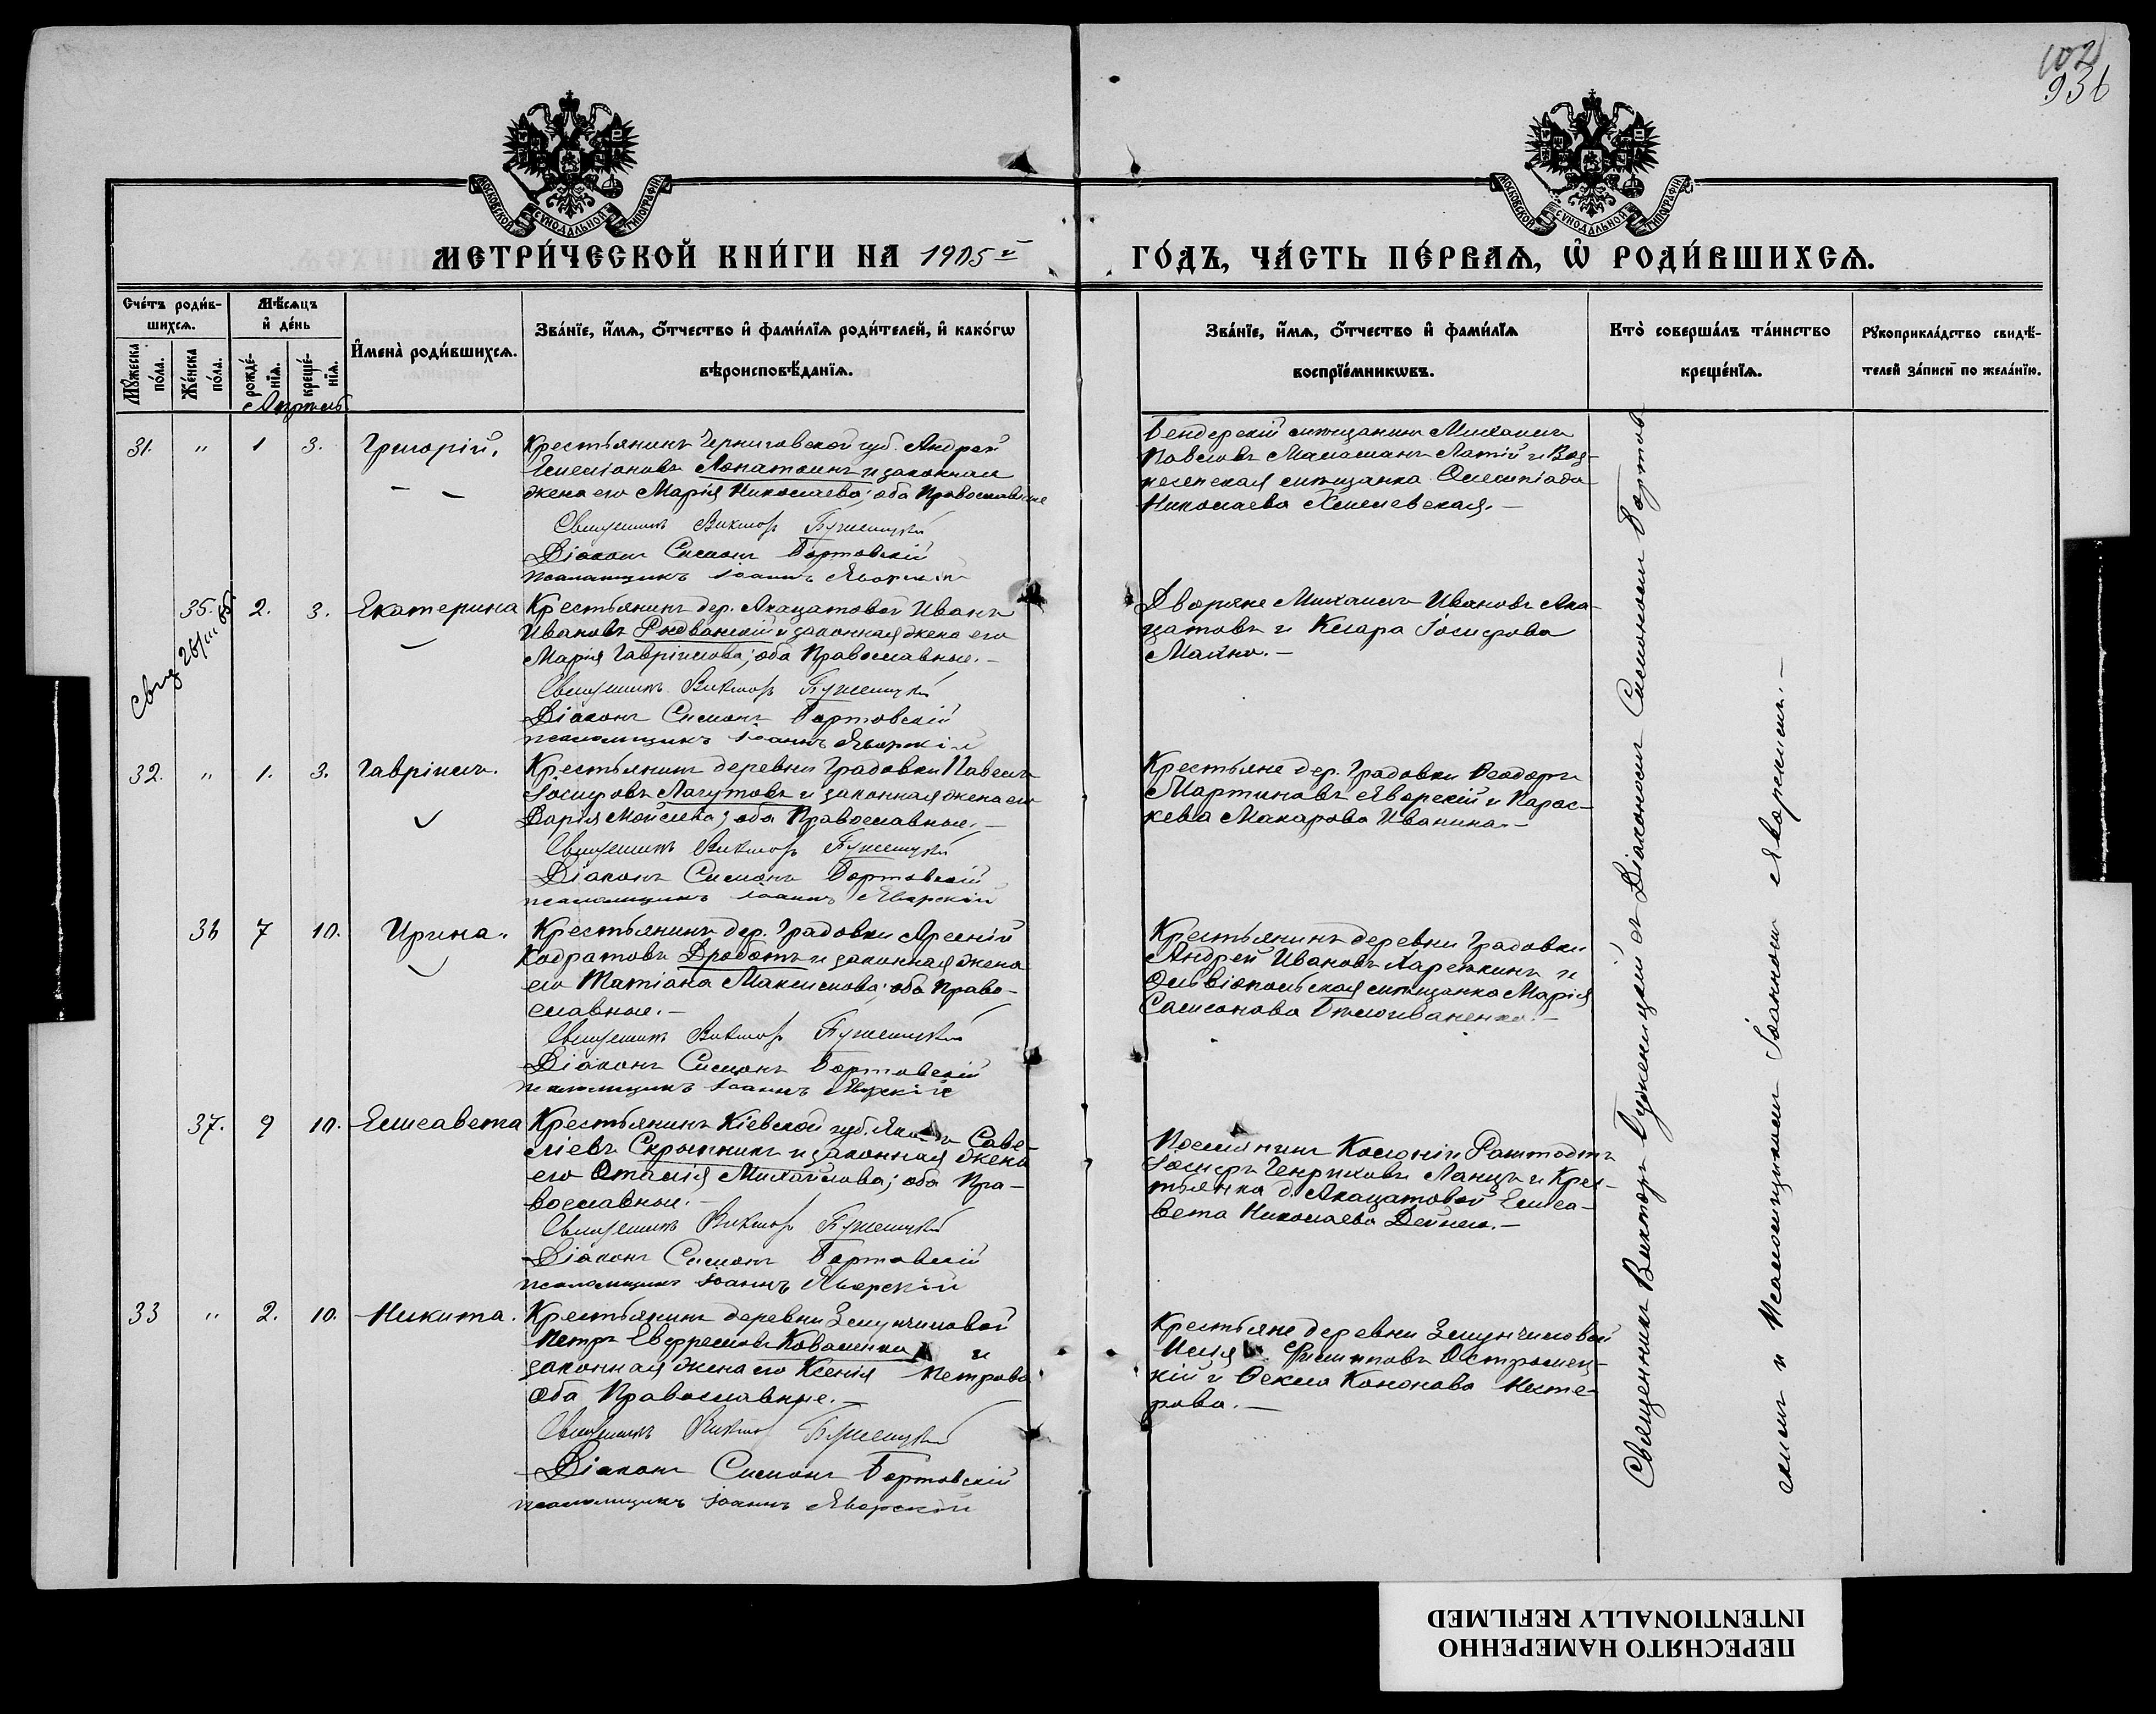 102
936
МОСКОВСКОЙ СѴНОДАЛЬНОЙ ТИПОГРАФІИ
МОСКОВСКОЙ СѴНОДАЛЬНОЙ ТИПОГРАФІИ
МЕТРИ́ЧЕСКОЙ КНИ́ГИ НА 1905й
ГО́ДЪ, ЧА́СТЬ ПЕ́РВАѦ, Ѡ҆ РОДИ́ВШИХСѦ.
Сче́тъ роди́в-
шихсѧ.
Мꙋ́жеска
по́ла.
Же́нска
по́ла.
Мѣ́сѧцъ
и҆ де́нь
рожде́-
нїѧ.
креще́-
нїѧ.
И҆мена̀ роди́вшихсѧ.
Зва́нїе, и҆́мѧ, ѻ҆́тчество и҆ фами́лїѧ роди́телей, и҆ како́гѡ
вѣроисповѣ́данїѧ.
Зва́нїе, и҆́мѧ, ѻ҆́тчество и҆ фами́лїѧ
воспрїе́мникѡвъ.
Кто̀ соверша́лъ та́инство
креще́нїѧ.
Рꙋкоприкла́дство свидѣ́-
телей за́писи по жела́нїю.
Апрель
31. " 1 3. Григорій.
Крестьянинъ Черниговской губ. Андрей
Лопатинъ и законная
жена его Марія Николаева; оба Православные
Священникъ Викторъ Буженицкій
Діаконъ Симонъ Бортовскій
псаломщикъ Іоаннъ Яворскій
Бендерскій мѣщанинъ Михаилъ
Павловъ и Воз-
несенская мѣщанка Олимпіада
Николаева Хмелевская.-
35. 2. 3. Екатерина
Крестьянинъ дер. Акацатовой Иванъ
Ивановъ Рыдванскій и законная жена его
Марія Гавріилова; оба Православные.-
Священникъ Викторъ Буженицкій
Діаконъ Симонъ Бортовскій
псаломщикъ Іоаннъ Яворскій
Дворяне Михаилъ Ивановъ Ака-
цатовъ и Клара Іосифова
Махно.-
32. " 1. 3. Гавріилъ.
Крестьянинъ деревни Градовки Павелъ
Іосифовъ Лагутовъ и законная жена его
Дарія Мойсіева; оба Православные.-
Священникъ Викторъ Буженицкій
Діаконъ Симонъ Бортовскій
псаломщикъ Іоаннъ Яворскій
Крестьяне дер. Градовки Ѳеодоръ
Мартиновъ Яворскій и Парас-
кева Макарова Иванина.-
36 7 10. Ирина.
Крестьянинъ дер. Градовки Арсеній
Кодратовъ Дроботъ и законная жена
его Татіана Максимова; оба Право-
славные.-
Священникъ Викторъ Буженицкій
Діаконъ Симонъ Бортовскій
псаломщикъ Іоаннъ Яворскій
Крестьянинъ деревни Градовки
Андрей Ивановъ Карепкинъ и
Ольвіопольская мѣщанка Марія
Самсонова Билоиваненко.-
37. 9 10. Елисавета
Крестьянинъ Кіевской губ. Саве-
ліевъ Скрыпникъ и законная жена
его Михайлова; оба Пра-
вославные.-
Священникъ Викторъ Буженицкій
Діаконъ Симонъ Бортовскій
псаломщикъ Іоаннъ Яворскій
Поселянинъ Колоніи Раштадтъ
Іосифъ Генриховъ Ланцъ и Крес-
тьянка д. Акацатовой Елиса-
вета Николаева Дейнега.-
33 " 2. 10. Никита.
Крестьянинъ деревни
Петръ Евфремовъ Коваленко и
законная жена его Ксенія Петрова
оба Православные.-
Священникъ Викторъ Буженицкій
Діаконъ Симонъ Бортовскій
псаломщикъ Іоаннъ Яворскій
Крестьяне деревни
Илія Филипповъ Остромец-
кій и Ѳекла Кононова Несте-
рова.-
Священникъ Викторъ Буженицкій съ Діакономъ Симономъ Бортов-
скимъ и Псаломщикомъ Іоанномъ Яворскимъ.-
ПЕРЕСНЯТО НАМЕРЕННО
INTENTIONALLY REFILMED